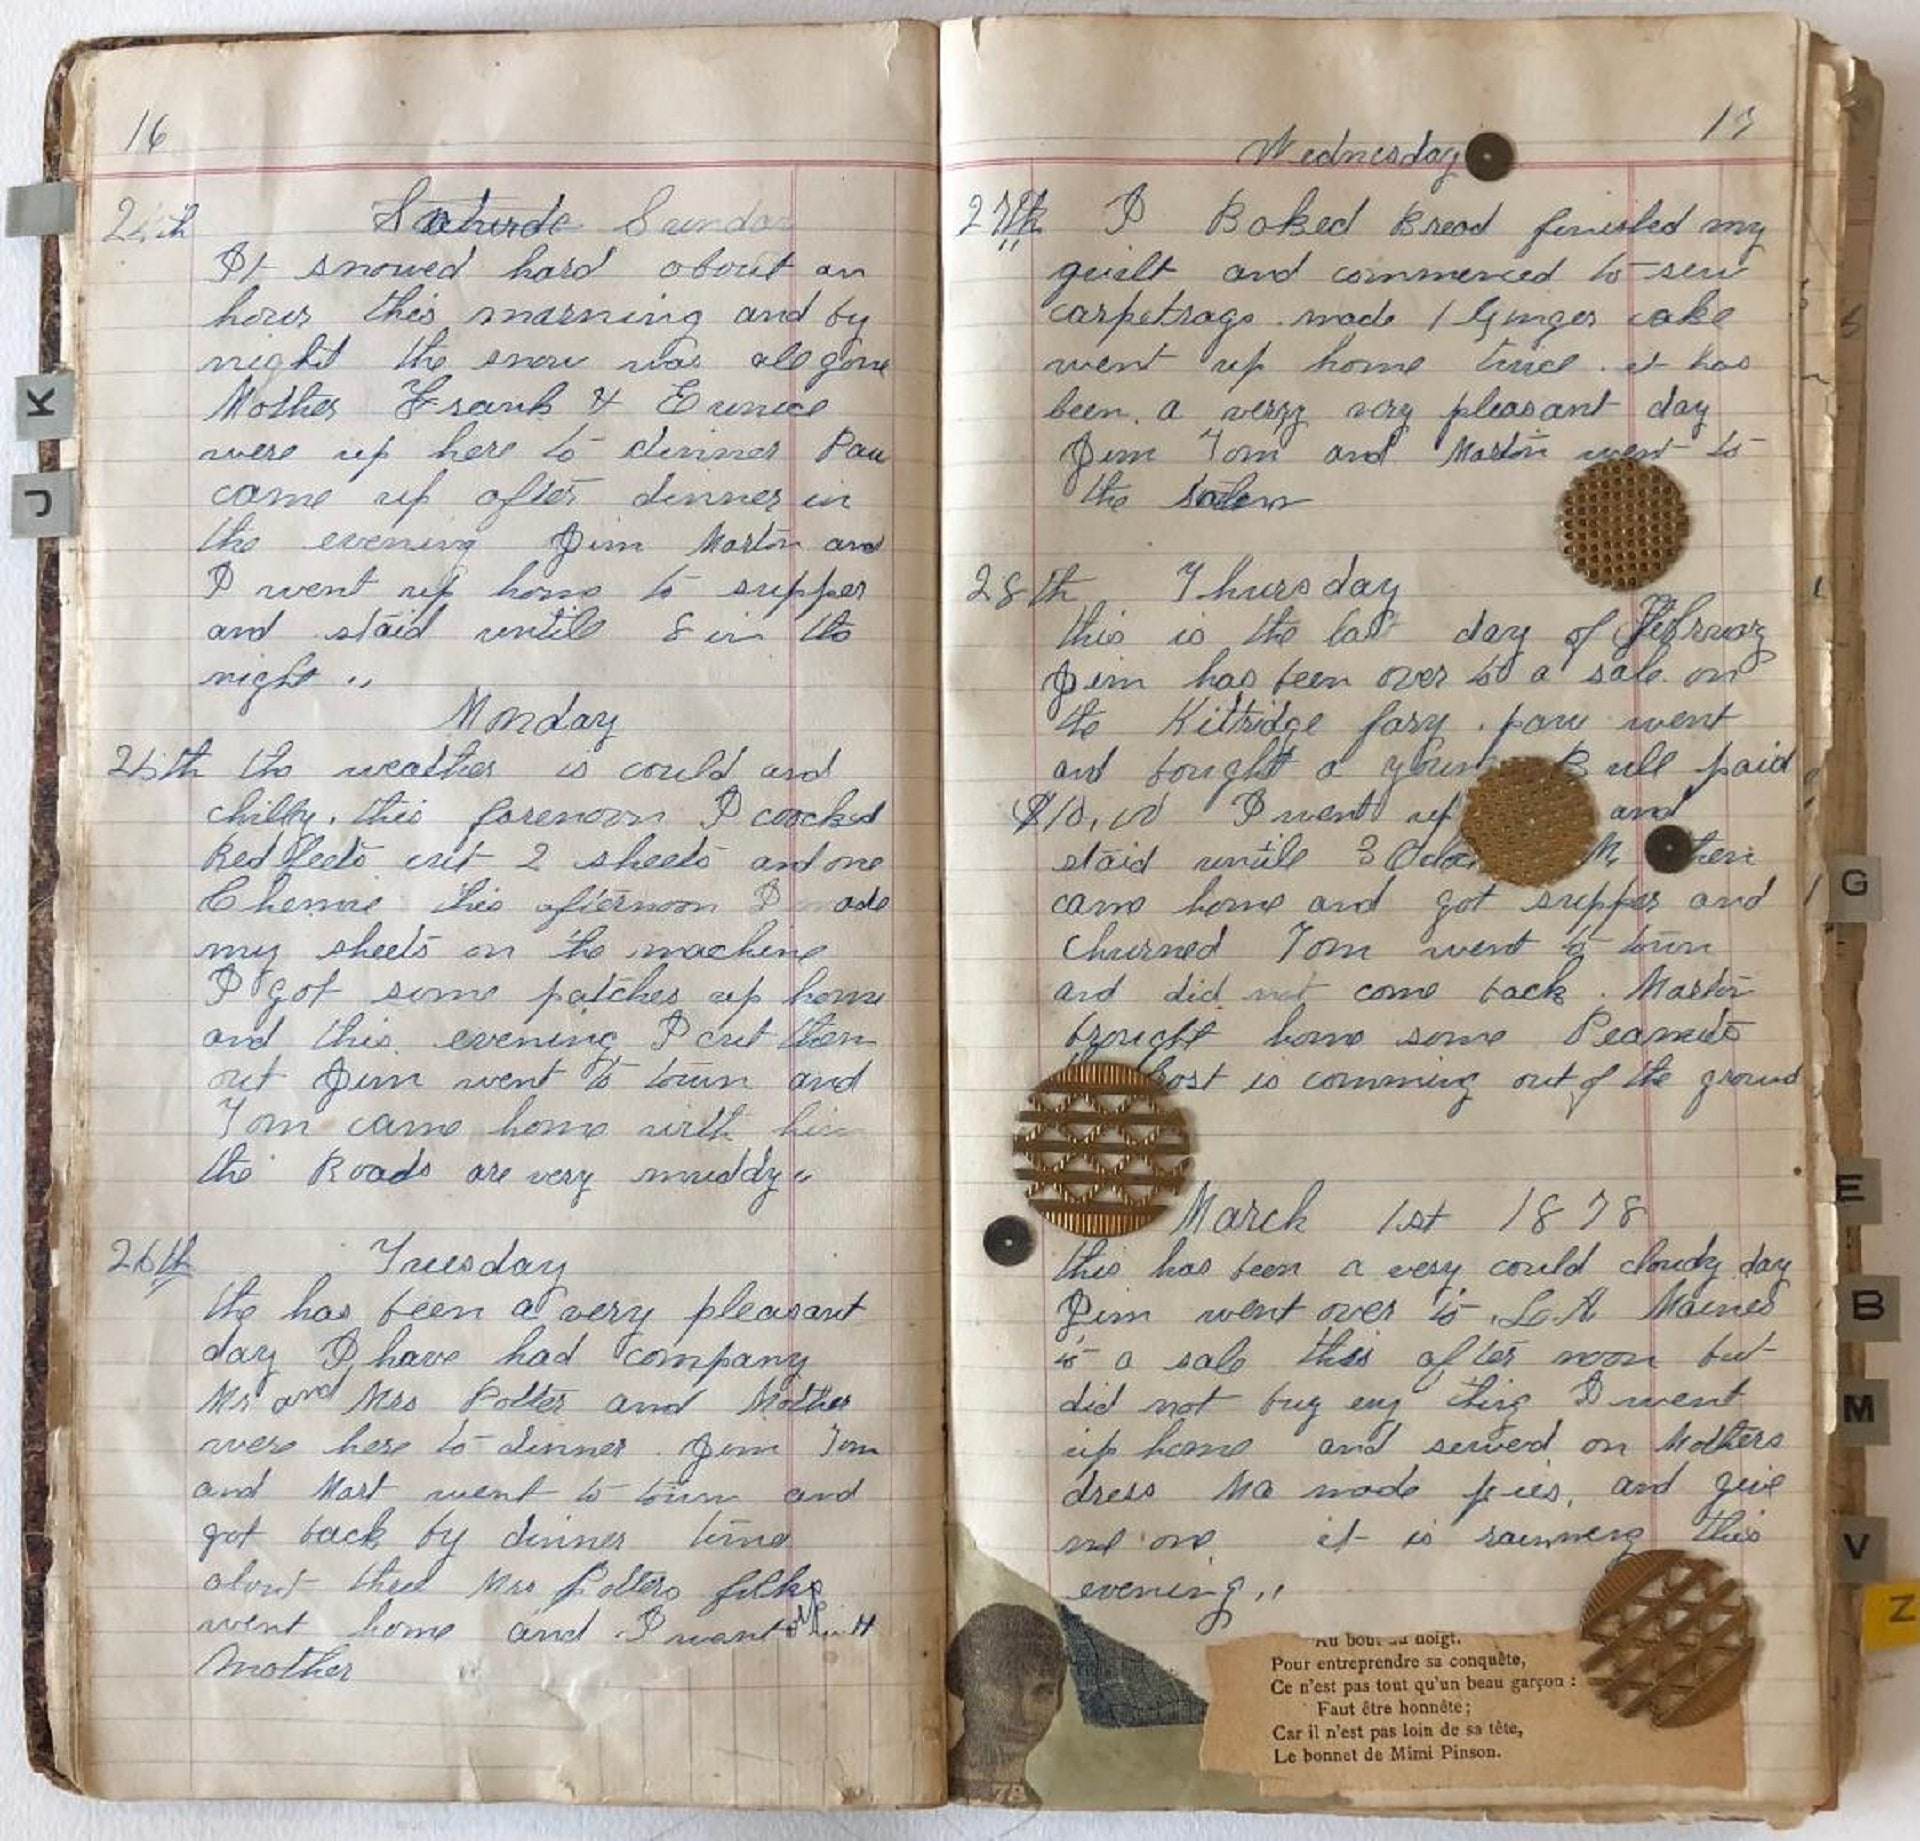 16
24th Saturda Sunday
It snowed hard about an
hour this morning and by
night the snow was all gone
Mother Frank & Eunice
were up here to dinner Paw
come up after dinner in
the evening Jim Martin and
I went up home to supper
and staid untile 8 in the
night "
Monday
25th the weather is could and
chilly. this forenoon I coocked
Red Beets cut 2 sheets and one
Chemie this afternoon I made
my sheets on the machine
I got some patches up home
and this evening I cut them
out Jim went to town and
Tom came home with him
the Roads are very muddy "
26th Tuesday
the has been a very pleasant
day I have had company
Mr and Mrs Potter and Mother
were here to dinner. Jim Tom
and Mart went to town and
got back by dinner time
about three Mrs Potters folks
went home and I went up with
Mother
17
Wednesday
27th I Baked Bread finished my
quilt and commenced to sew
carpetrags. made 1 Ginger cake
went up home twice. it has
been. a verry very pleasant day
Jim Tom and Martin went to
the
28th Thursday
this is the last day of February
Jim has been over to a sale on
the Kittridge . paw went
and bought a young Bull paid
$10,00 I went up and
staid untile 3 then
came home and got supper and
churned Tom went to town
and did not come back. Martin
brought home some Peanuts
frost is comming out of the ground
March 1st 1878
this has been a very could cloudy day
Jim went over to Maines
to a sale this after noon but
did not buy eny thing I went
up home and sewed on Mothers
dress Ma made pies, and give
me one it is rainning this
evening "
Au bout du doigt.
Pour entreprendre sa conquête,
Ce n'est pas tout qu'un beau garçon :
Faut être honnête ;
Car il n'est pas loin de sa tête,
Le bonnet de Mimi Pinson.
78
K
J
G
E
B
M
V
Z